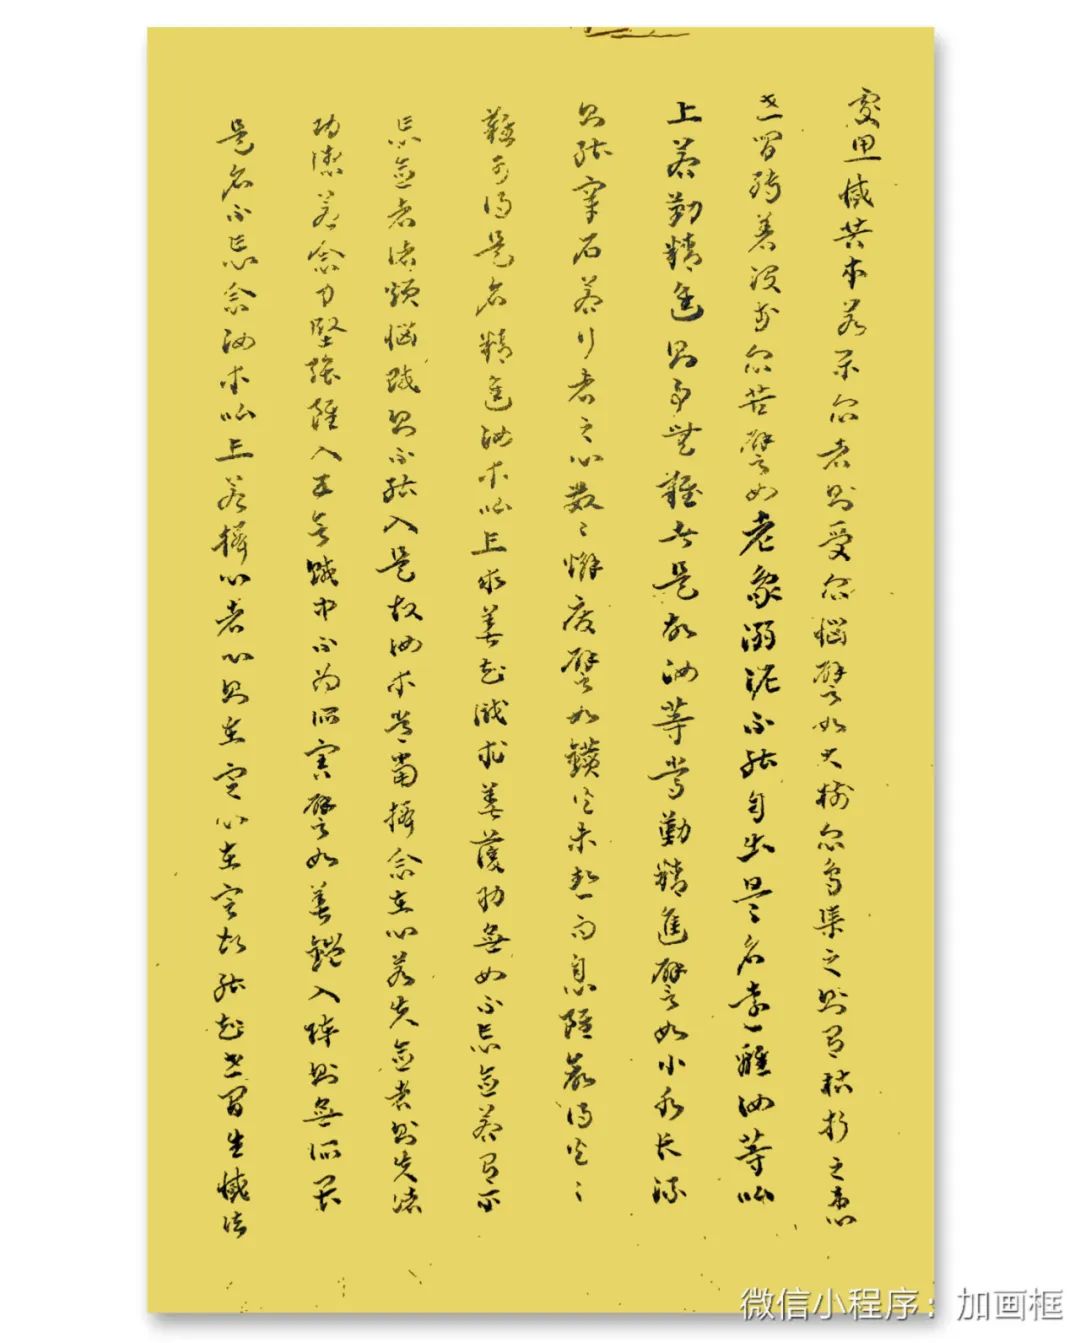 處思滅苦本若樂眾者則受眾惱譬如大樹眾鳥集之則有枯折之患
世間縛著沒於眾苦譬如老象溺泥不能自出是名遠離汝等比
丘若勤精進則事無難者是故汝等當勤精進譬如小水長流
則能穿石若行者之心數々懈廢譬如鑽火未熱而息雖欲得火々
難可得是名精進汝等比丘求善知識求善護助無如不忘念若有不
忘念者諸煩惱賊則不能入是故汝等常當攝念在心若失念者則失諸
功德若念力堅強雖入五欲賊中不為所害譬如著鎧入陣則無所畏
是名不忘念汝等比丘若攝心者心則在定心在定故能知世間生滅法
微信小程序：加画框